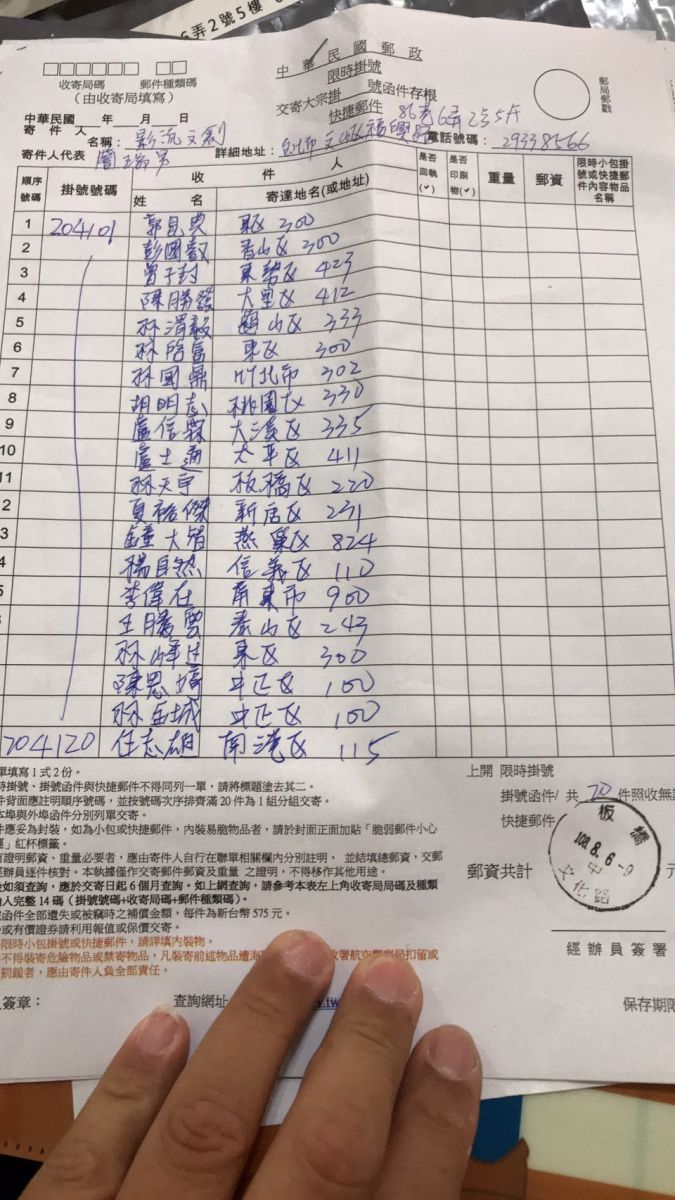 弄2號5樓
中華民國郵政
限時掛號
交寄大宗掛 號函件存根
快捷郵件
收寄局碼 郵件種類碼
(由收寄局填寫)
郵局郵戳
中華民國 年 月 日
寄件人
名稱：影流文創
詳細地址：台北市文山區福興路
86巷6弄2號5樓
電話號碼：29338566
寄件人代表
順序號碼 掛號號碼 收件人 是否回執(✓) 是否印刷物(✓) 重量 郵資 限時小包掛號或快捷郵件內容物品名稱
姓名 寄達地名(或地址)
1 204101 東區 300
2 彭國毅 香山區 300
3 曾子封 東勢區 423
4 陳勝發 大里區 412
5 林渭毅 龜山區 333
6 林啟富 東區 300
7 林國鼎 竹北市 302
8 胡明志 桃園區 330
9 盧信霖 大溪區 335
10 盧士通 太平區 411
11 林天宇 板橋區 220
2 夏裕傑 新店區 231
3 鍾大 燕巢區 824
4 楊自然 信義區 110
5 李偉在 屏東市 900
王勝雲 泰山區 243
林峰 東區 300
陳思 中正區 100
林金城 中正區 100
204120 任志雄 南港區 115
單填寫1式2份。
時掛號、掛號函件與快捷郵件不得同列一單，請將標題塗去其二。
件背面應註明順序號碼，並按號碼次序排齊滿20件為1組分組交寄。
本埠與外埠函件分別列單交寄。
件應妥為封裝，如為小包或快捷郵件，內裝易脆物品者，請於封面正面加貼「脆弱郵件小心
」紅杯標籤。
證明郵資、重量必要者，應由寄件人自行在聯單相關欄內分別註明，並結填總郵資，交郵
經辦員逐件核對。本執據僅作交寄郵件郵資及重量之證明，不得移作其他用途。
如須查詢，應於交寄日起6個月查詢。如上網查詢，請參考本表左上角收寄局局碼及種類
入完整14碼(掛號號碼+收寄局碼+郵件種類碼)。
函件全部遺失或被竊時之補償金額，每件為新台幣575元。
或有價證券請利用報值或保價交寄。
限時小包掛號或快捷郵件，請詳填內裝物。
不得裝寄危險物品或禁寄物品，凡裝寄前述物品遭海 收署航空警察局扣留或
罰鍰者，應由寄件人負全部責任。
上開 限時掛號
掛號函件/ 共 20 件照收無
快捷郵件
郵資共計 元
板橋
108.8.6-9
文化路
經辦員簽署
簽章： 查詢網址 .tw
保存期限